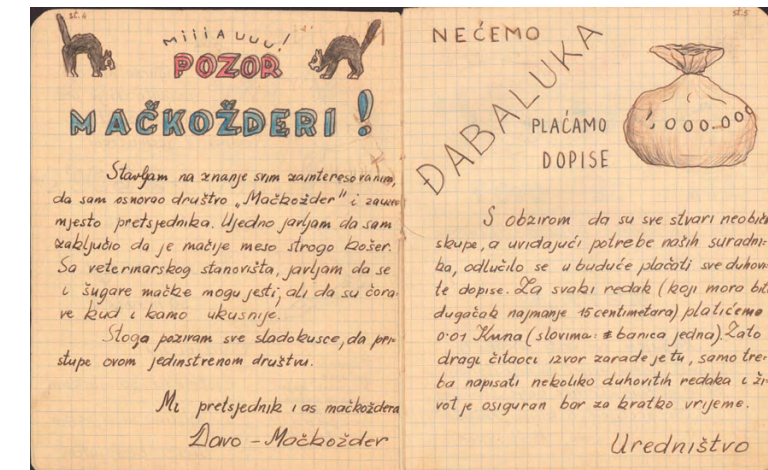 st. 4
MiiiAuuu!
POZOR
MAČKOŽDERI!
Stavljam na znanje svim zainteresovanim,
da sam osnovao društvo „Mačkožder" i zauzeo
mjesto pretsjednika. Ujedno javljam da sam
zaključio da je mačije meso strogo košer.
Sa veterinarskog stanovišta, javljam da se
i šugave mačke mogu jesti, ali da su ćora-
ve kud i kamo ukusnije.
Stoga pozivam sve sladokusce, da pri-
stupe ovom jedinstvenom društvu.
pretsjednik i as mačkoždera
Davo - Mačkožder
st. 5
NEĆEMO
ĐABALUKA
PLAĆAMO
DOPISE
000.000
S obzirom da su sve stvari neobič
skupe, a uviđajući potrebe naših suradni-
ka, odlučilo se u buduće plačati sve duhovi-
te dopise. Za svaki redak (koji mora biti
dugačak najmanje 15 centimetara) platićemo
0.01 Kuna (slovima: banica jedna). Zato
dragi čitaoci izvor zarade je tu, samo tre-
ba napisati nekoliko duhovitih redaka i ži-
vot je osiguran bar za kratko vrijeme.
Uredništvo